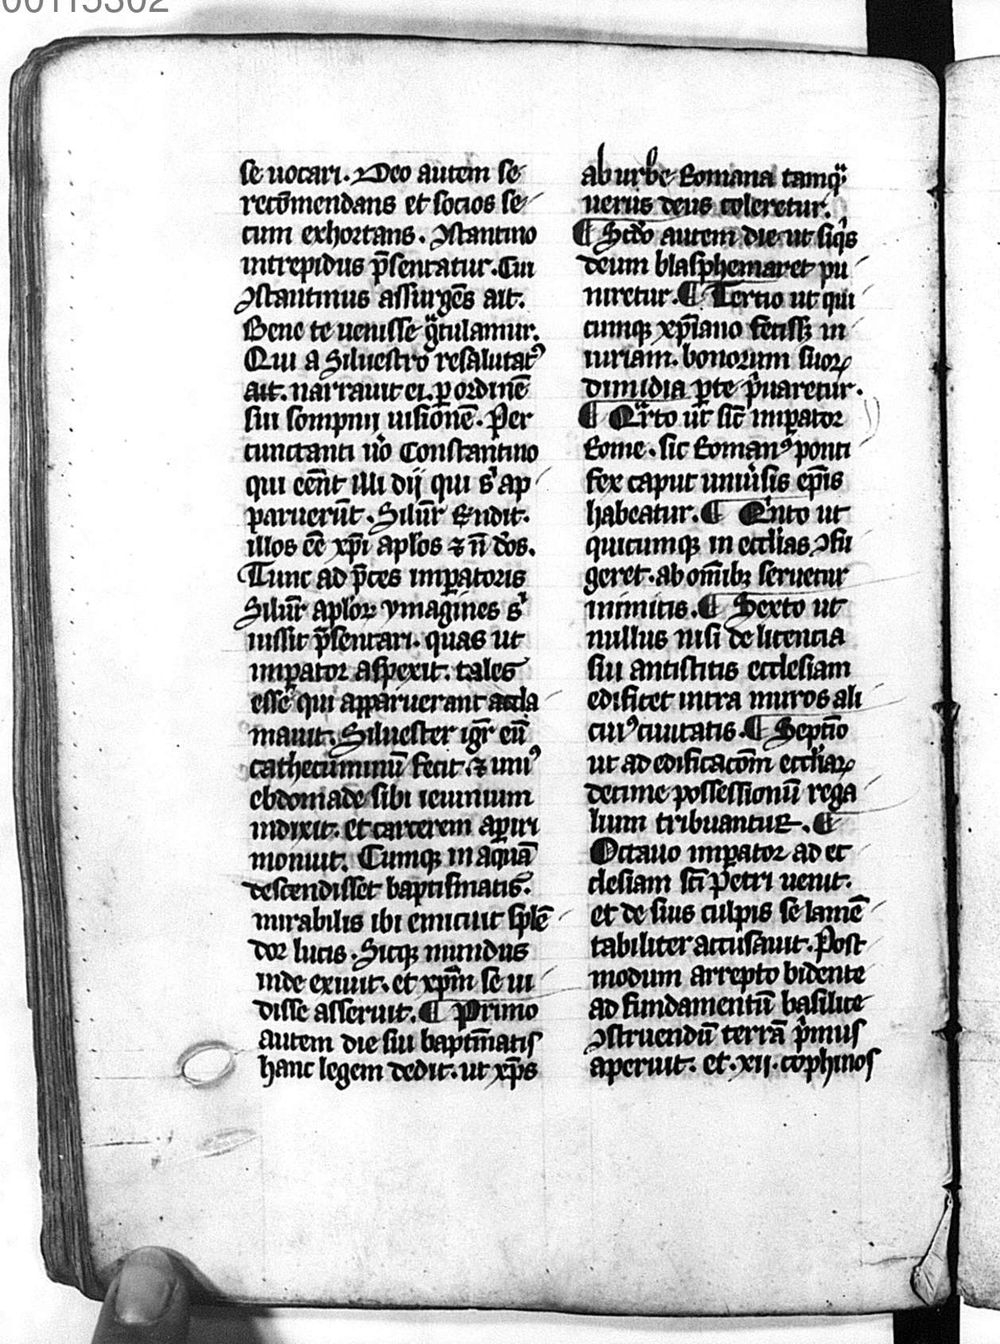 00115302
se uocari. Deo autem se
recōmendans et socios se
cum exhortans. ꝯstantino
intrepidus p̄sentatur. Cui
ꝯstantinus assurgēs ait.
Bene te uenisse gͣtulamur.
Qui a Siluestro resalutatꝰ
ait. narrauit ei. ꝑ ordinē
sui sompnij uisionē. Per
cunctanti uͦo Constantino
qui eēnt illi dij qui sͥ ap
paruerūt. Siluͬ rn̄dit.
illos eē xp̄i apl̓os ⁊ nͫ dͦos.
Tunc ad p̄ces imꝑatoris
Siluͬ apl̓oꝝ ymagines sͥ
iussit p̄sentari. quas ut
imꝑator aspexit. tales
esse qui apparuerant accla
mauit. Siluester igͬ eū
cathecuminū fecit. ⁊ uniꝰ
ebdomade sibi ieiunium
indixit. et carcerem aꝑiri
monuit. Cumqꝫ in aquā
descendisset baptismatis.
mirabilis ibi emicuit splē
dor lucis. Sicqꝫ mundus
inde exiuit. et xp̄m se ui
disse asseruit. ¶ Primo
autem die sui baptm̄atis
hanc legem dedit. ut xp̄s
ab urbe Romana tamqͣ
uerus deus coleretur.
¶ Scd̓o autem die. ut siqͥs
deum blasphemaret pu
niretur. ¶ Tertio ut qui
cumqꝫ xp̄iano fecissꝫ in
iuriam. bonorum suoꝝ
dimidia ꝑte pͥuaretur.
¶ Qͣrto ut sic̄ imꝑator
Rome. sic Romanꝰ ponti
fex caput uniu̓sis ep̄is
habeatur. ¶ Qͥnto ut
quicumqꝫ in eccl̓ias ꝯfu
geret. ab om̄ibꝫ seruetur
inimicis. ¶ Sexto ut
nullus nisi de licencia
sui antistitis ecclesiam
edificet intra muros ali
cuiꝰ ciuitatis. ¶ Septīo
ut ad edificacōm eccl̓iaꝝ
decime possessionū rega
lium tribuantur. ¶
Octauo imꝑator ad ec
clesiam sc̄i Petri uenit.
et de suis culpis se lamē
tabiliter accusauit. Post
modum arrepto bidente
ad fundamentū basilice
ꝯstruendū terrā pͥmus
aperuit. et .xii. cophinos